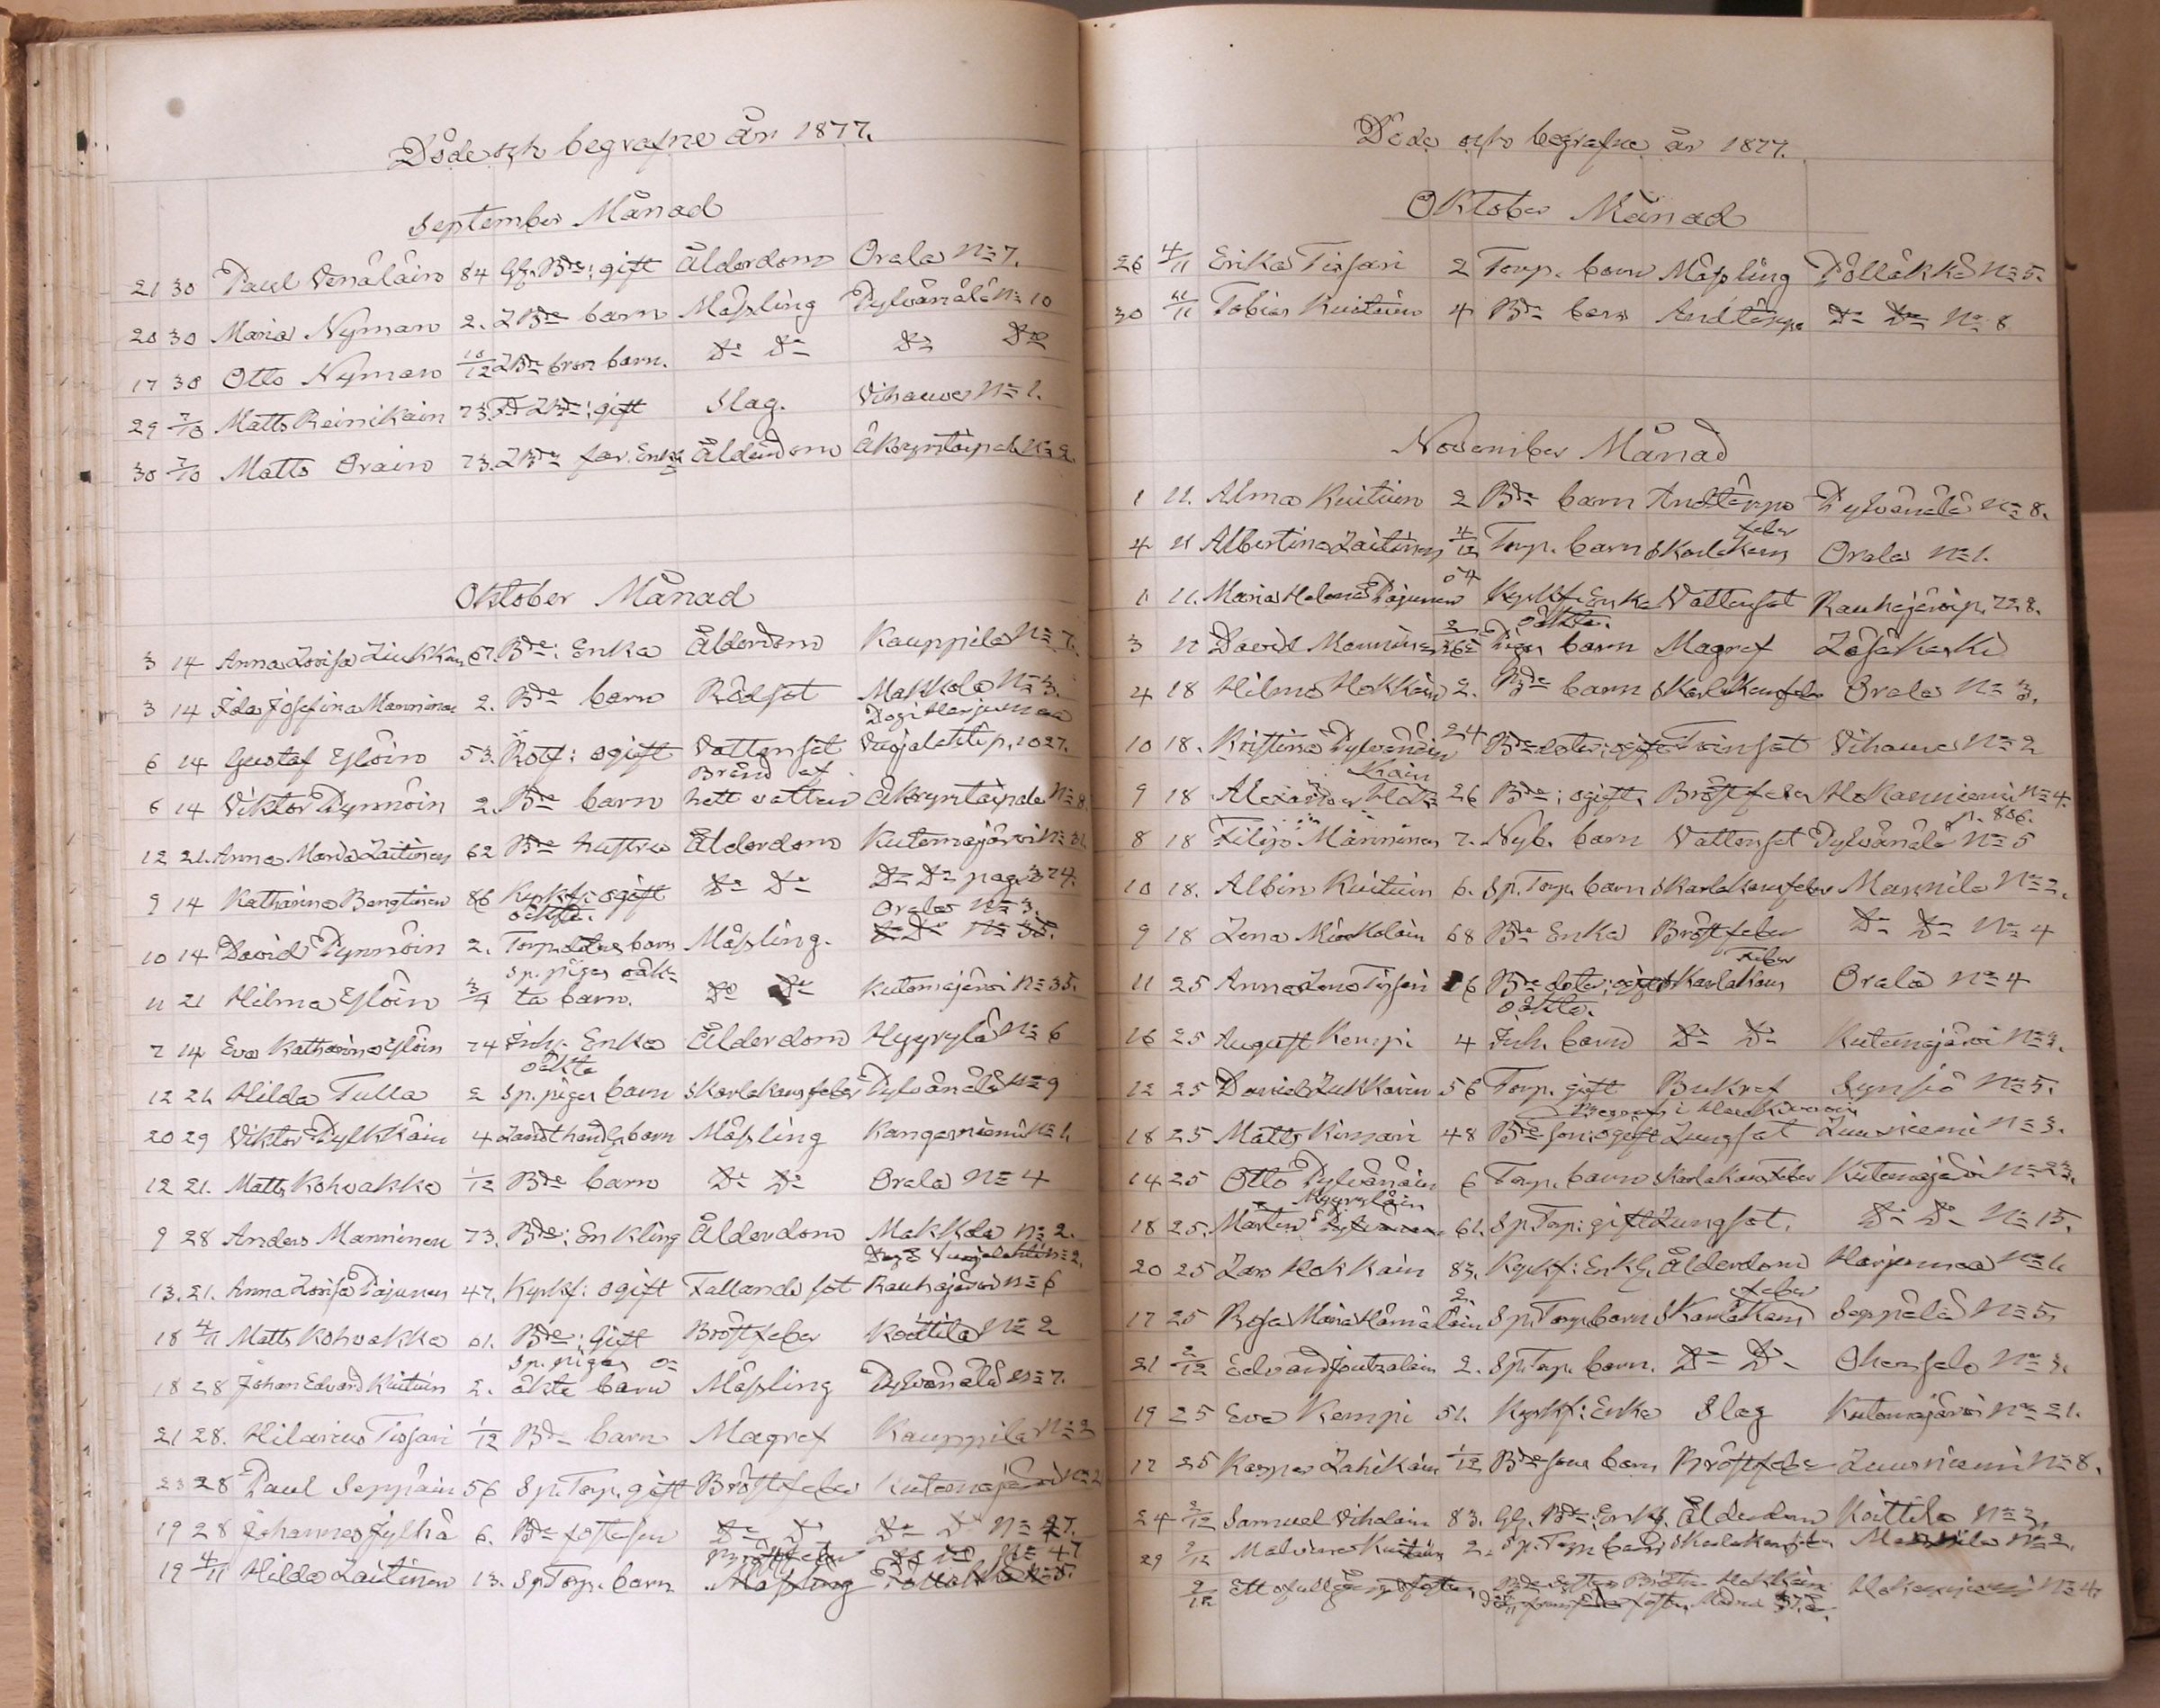 Döde och begrafne år 1877.
September Månad
21 30 Paul Venäläin 84 Gf. Bde: gift Ålderdom Orala No 7.
20 30 Maria Nyman 2. LBde barn Mässling Pylvänälä No 10
17 30 Otto Nyman 10/12 LBde barn. Do Do Do Do
29 7/10 Matts Reinikain 73. LBde: gift Slag. Vihavus No 1.
30 7/10 Matts Orain 73. LBde far. Enkl Ålderdom Äkryntaipale No 2.
Oktober Månad
3 14 Anna Lovisa Liukkun 67. Bde: Enka Ålderdom Kauppila No 7.
3 14 Ida Josefina Manninen 2. Bde barn Rödsot Makkola No 3.
Dogi Harjumaa
6 14 Gustaf Ylöin 53. Rotf: ogift Vattensot Vuojalahti p. 1027.
Bränd af
6 14 Viktor Pynnöin 2. Bde barn hett vatten Äkryntaipale No 8.
12 21. Anna Maria Laitinen 62 Bde hustru Ålderdom Kutemajärvi No 31.
9 14 Katharina Bengtinen 86 Kyrkf: ogift Do Do Do Do pag. 374.
oäkta. Orala No 3.
10 14 David Pynnöin 2. Torp. barn Mässling. Do Do No 35.
Sp. pigas oäk-
11 21 Hilma Ylöin 3/4 ta barn. Do Do Kutemajärvi No 35.
7 14 Eva Katharina Ylöin 74 Inh. Enka Ålderdom Hyyrylä No 6
oäkta
12 21 Hilda Tulla 2 Sp. pigas barn Skarlakansfeber Pylvänälä No 9
20 29 Viktor Pylkkäin 4 Landthandl. barn Mässling Kangasniemi No 1.
12 21. Matts Kohvakka 1/12 Bde barn Do Do Orala No 4
9 28 Anders Manninen 73. Bde: Enkling Ålderdom Makkola No 2.
Vuojalahti No 2.
13. 21. Anna Lovisa Pajunen 47. Kyrkf: ogift Fallandesot Rauhajärvi No 6
18 4/11 Matts Kohvakka 61. Bde: Gift Bröstfeber Koittila No 2
Sp. pigas o=
18 28 Johan Edvard Kuituin 2. äkta barn Mässling Pylvänälä No 7.
21 28. Hilarius Tissari 1/12 Bde barn Magref Kauppila No 2
23 28 Paul Seppäin 56 Sp. Torp. gift Bröstfeber Kutemajärvi No 2
19 28 Johannes Jylhä 6. Bde fosterson Do Do Do Do No 27.
Bröstfeber Do Do No 47
19 4/11 Hilda Laitinen 13. Sp Torp. barn Mässling Pölläkkä No 5.
Döde och begrafne år 1877.
Oktober Månad
26 4/11 Erika Tissari 2 Torp. barn Mässling Pölläkkä No 5.
30 11/11 Tobias Kuituin 4 Bde barn Andtäppa Do Do No 8
November Månad
1 11. Alma Kuituin 2 Bde barn Andtäppa Pylvänälä No 8.
feber
4 11 Albertina Laitinen 4/12 Torp. barn Skarlakans Orala No 1.
54
1 11. Maria Helena Pajunen Kyrkf. Enka Vattensot Rauhajärvi p. 728.
oäkta.
3 11 David Manninen Pigas barn Magref Läsäkoski
4 18 Hilma Hokkain 2. Bde barn Skarlakansfeber Orala No 3.
24
10 18. Kristina Pylvänäin Bde doter: ogift Tvinsot Vihavus No 2
kain
9 18 Alexander Hok= 26 Bde: ogift. Bröstfeber Hokanniemi No 4.
p. 806.
8 18 Filip Manninen 7. Nyb. barn Vattensot Pylvänälä No 5
10 18. Albin Kuituin 6. Sp. Torp. barn Skarlakansfeber Mannila No 2.
9 18 Lena Minkkoläin 68 Bde Enka Bröstfeber Do Do No 4
feber
11 25 Anna Lena Tissari 6 Bde doter: ogift Skarlakans Orala No 4
oäkta.
16 25 August Kempi 4 Inh. barn Do Do Kutemajärvi No 3.
12 25 David Lukkarin 56 Torp. gift Bukref Synsiö No 5.
Begraf. i Haukivuori
18 25 Matts Kinnari 48 Bde son: ogift Lungsot Luusniemi No 3.
14 25 Otto Pylvänäin 6 Torp. barn Skarlakansfeber Kutemajärvi No 23.
Hyyryläin
18 25. Mårten 61. Sp. Torp: gift Lungsot. Do Do No 15.
20 25 Lars Hokkain 83. Kyrkf: Enkl. Ålderdom Harjumaa No 1.
2. feber
17 25 Rosa Maria Hämäläin Sp. Torp. barn Skarlakans Seppälä No 5
21 2/12 Edvard Joutsalain 2. Sp. Torp. barn. Do Do Ohensalo No 3.
19 25 Eva Kempi 51. Kyrkf: Enka Slag Kutemajärvi No 21.
17 25 Kasper Lahikain 1/12 Bde sons barn Bröstfeber Luusniemi No 8.
24 2/12 Samuel Viholain 83. Gf. Bde: Enkl. Ålderdom Koittila No 3.
29 2/12 Malvina Kuituin 2. Sp. Torp. barn Skarlakansfeber Mannila No 2.
2/12 Ett ofullgånget foster, Bde Hokkain Hokanniemi No 4.